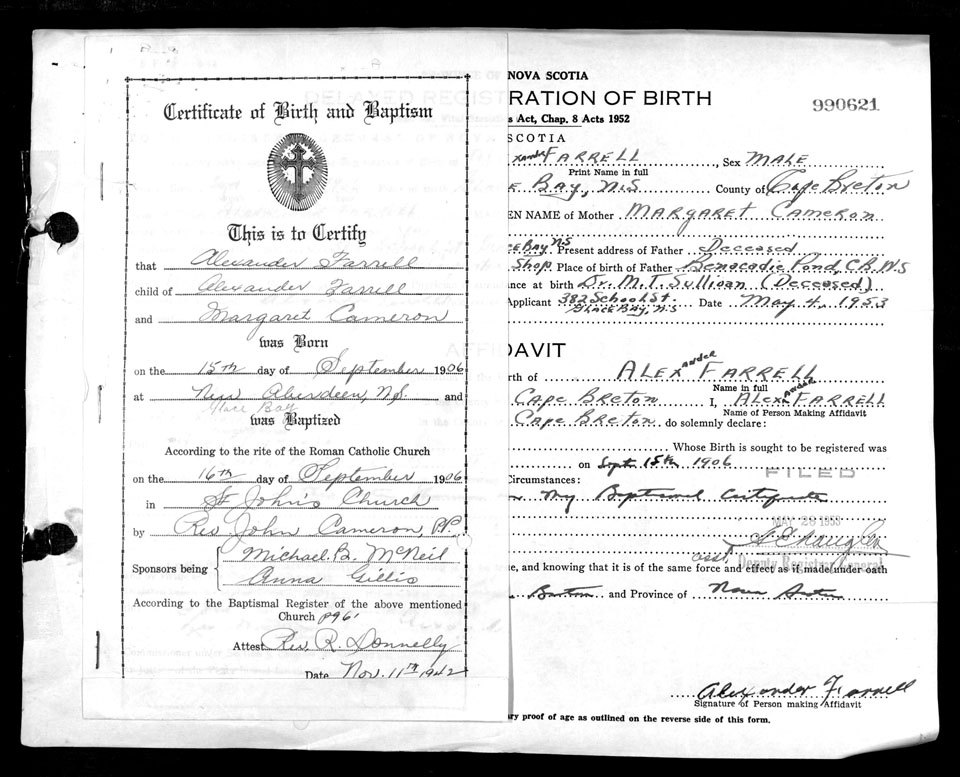 Certificate of Birth and Baptism
This is to Certify
that Alexander Farrell
child of Alexander Farrell
and Margaret Cameron
was Born
on the 15th day of September 1906
at New Aberdeen, N.S. and
Glace Bay
was Baptized
According to the rite of the Roman Catholic Church
on the 16th day of September 1906
in St John's Church
by Rev John Cameron, P.P.
Sponsors being { Michael B. McNeil
Anna Gillis
According to the Baptismal Register of the above mentioned
Church p96
Attest Rev. R. Donnelly
Date Nov. 11th 1942
NOVA SCOTIA
RATION OF BIRTH
990621
s Act, Chap. 8 Acts 1952
SCOTIA
xander FARRELL, Sex MALE
Print Name in full
E BAY, N.S County of Cape Breton
EN NAME of Mother MARGARET CAMERON
CE BAY N.S Present address of Father Deceased
Shop Place of birth of Father Benacadie Pond, C.B. N.S
nce at birth Dr. M.T. Sullivan (Deceased)
Applicant 382 School St. Date May 4, 1953
GLACE BAY, N.S
DAVIT
rth of ALEXander FARRELL
Name in full
CAPE BRETON I, ALEXander FARRELL
Name of Person Making Affidavit
CAPE BRETON do solemnly declare:
Whose Birth is sought to be registered was
on Sept 15th 1906
FILED
Circumstances:
My Baptismal Certificate
MAY 28 1953
asst. Deputy Registrar General
e, and knowing that it is of the same force and effect as if made under oath
Breton and Province of Nova Scotia
Alexander Farrell
Signature of Person making Affidavit
ry proof of age as outlined on the reverse side of this form.